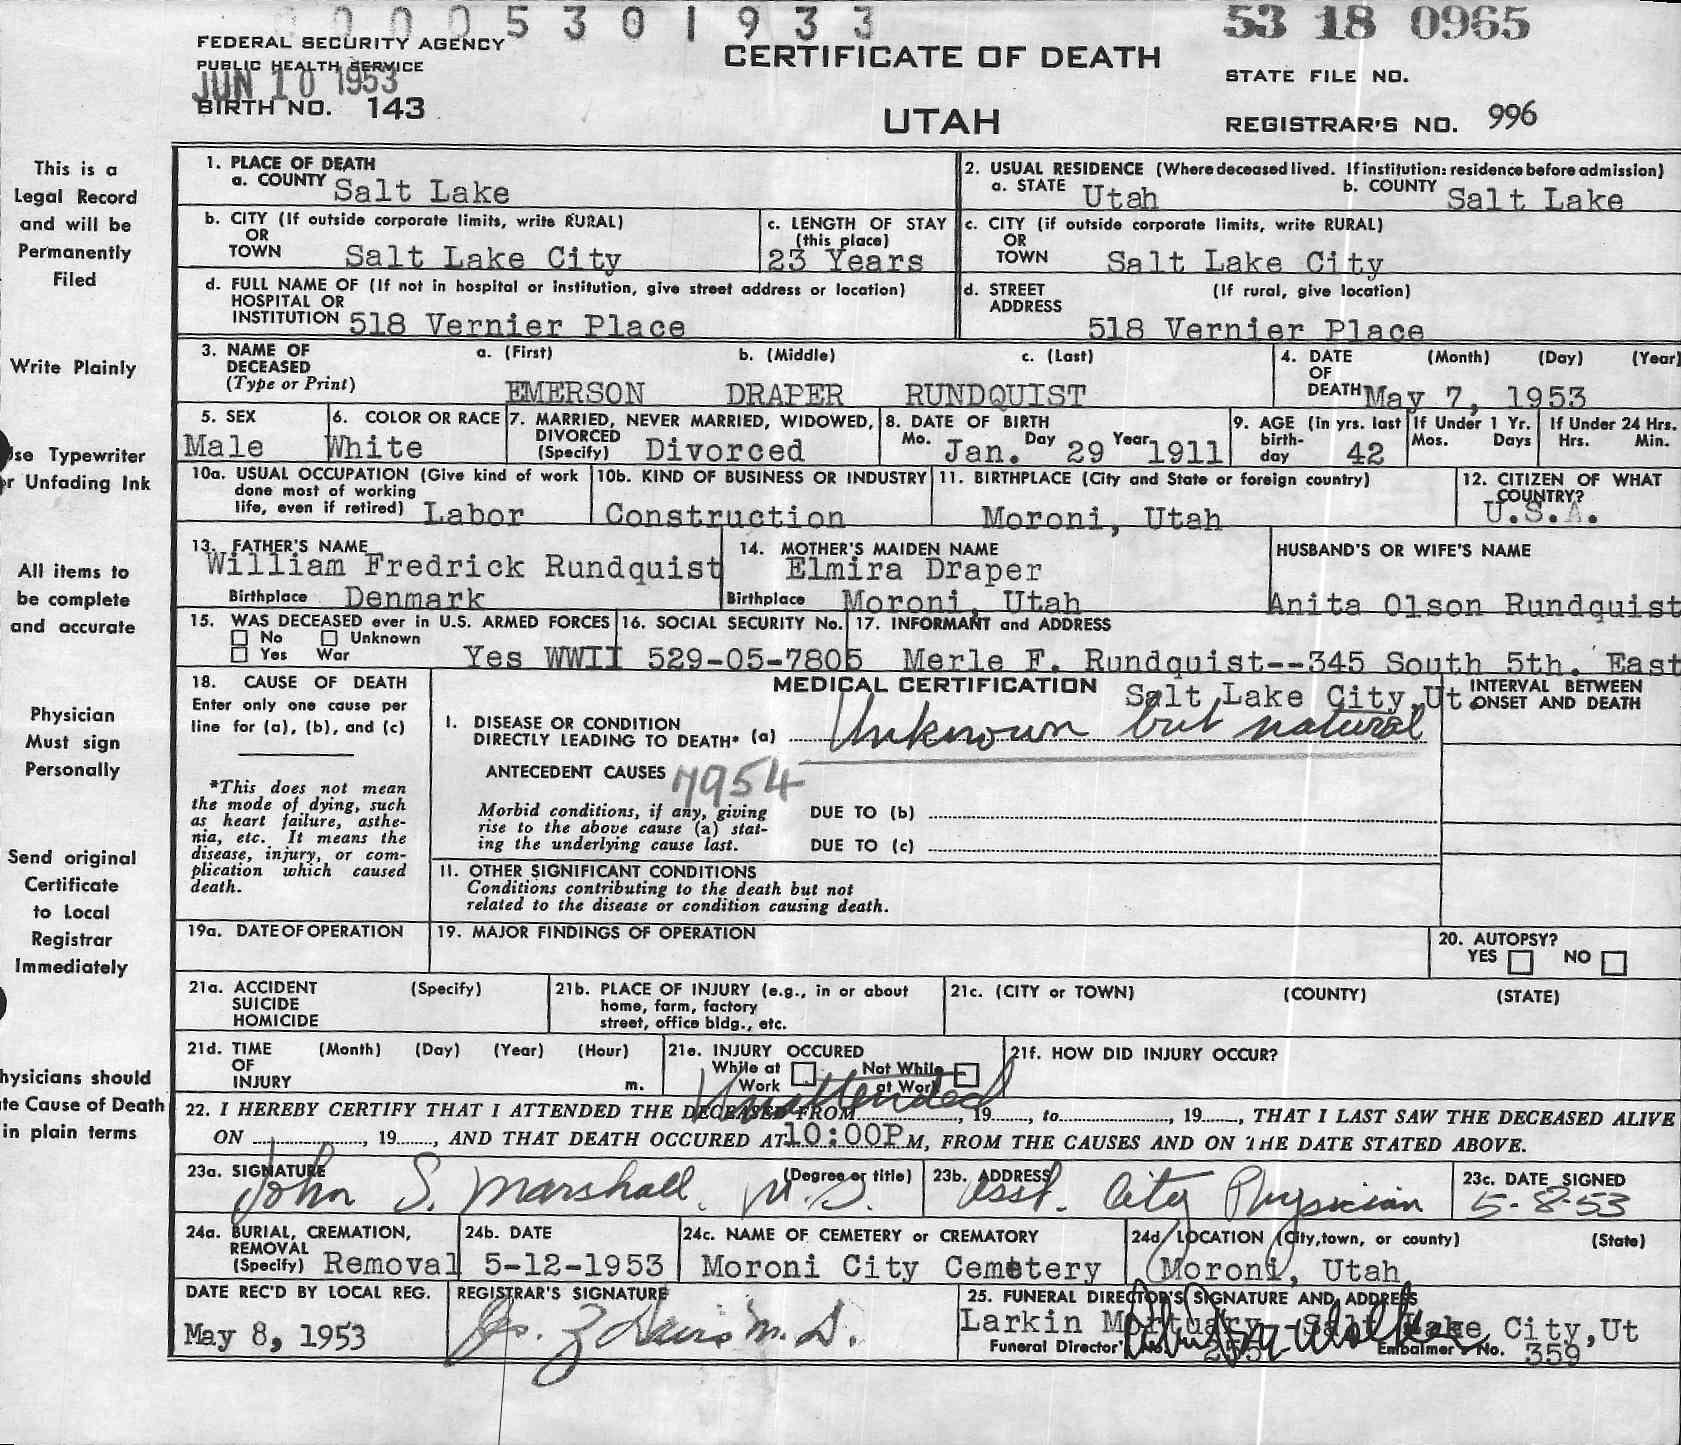 0005301933
53 18 0965
FEDERAL SECURITY AGENCY
PUBLIC HEALTH SERVICE
JUN 10 1953
BIRTH NO. 143
CERTIFICATE OF DEATH
UTAH
STATE FILE NO.
REGISTRAR'S NO. 996
This is a
Legal Record
and will be
Permanently
Filed
Write Plainly
se Typewriter
r Unfading Ink
All items to
be complete
and accurate
Physician
Must sign
Personally
Send original
Certificate
to Local
Registrar
Immediately
hysicians should
te Cause of Death
in plain terms
1. PLACE OF DEATH
a. COUNTY Salt Lake
2. USUAL RESIDENCE (Where deceased lived. If institution: residence before admission)
a. STATE Utah b. COUNTY Salt Lake
b. CITY (If outside corporate limits, write RURAL)
OR
TOWN Salt Lake City
c. LENGTH OF STAY
(this place)
23 Years
c. CITY (if outside corporate limits, write RURAL)
OR
TOWN Salt Lake City
d. FULL NAME OF (If not in hospital or institution, give street address or location)
HOSPITAL OR
INSTITUTION 518 Vernier Place
d. STREET (If rural, give location)
ADDRESS
518 Vernier Place
3. NAME OF a. (First) b. (Middle) c. (Last)
DECEASED
(Type or Print) EMERSON DRAPER RUNDQUIST
4. DATE (Month) (Day) (Year)
OF
DEATH May 7, 1953
5. SEX
Male
6. COLOR OR RACE
White
7. MARRIED, NEVER MARRIED, WIDOWED,
DIVORCED
(Specify) Divorced
8. DATE OF BIRTH
Mo. Jan. Day 29 Year 1911
9. AGE (In yrs. last
birth-
day 42
If Under 1 Yr.
Mos. Days
If Under 24 Hrs.
Hrs. Min.
10a. USUAL OCCUPATION (Give kind of work
done most of working
life, even if retired) Labor
10b. KIND OF BUSINESS OR INDUSTRY
Construction
11. BIRTHPLACE (City and State or foreign country)
Moroni, Utah
12. CITIZEN OF WHAT
COUNTRY?
U.S.A.
13. FATHER'S NAME
William Fredrick Rundquist
Birthplace Denmark
14. MOTHER'S MAIDEN NAME
Elmira Draper
Birthplace Moroni, Utah
HUSBAND'S OR WIFE'S NAME
Anita Olson Rundquist
15. WAS DECEASED ever in U.S. ARMED FORCES
No Unknown
Yes War Yes WWII
16. SOCIAL SECURITY No.
529-05-7805
17. INFORMANT and ADDRESS
Merle F. Rundquist--345 South 5th. East
Salt Lake City, Ut.
18. CAUSE OF DEATH
Enter only one cause per
line for (a), (b), and (c)
*This does not mean
the mode of dying, such
as heart failure, asthe-
nia, etc. It means the
disease, injury, or com-
plication which caused
death.
MEDICAL CERTIFICATION
INTERVAL BETWEEN
ONSET AND DEATH
I. DISEASE OR CONDITION
DIRECTLY LEADING TO DEATH* (a) Unknown but natural
ANTECEDENT CAUSES 7954
Morbid conditions, if any, giving
rise to the above cause (a) stat-
ing the underlying cause last.
DUE TO (b)
DUE TO (c)
11. OTHER SIGNIFICANT CONDITIONS
Conditions contributing to the death but not
related to the disease or condition causing death.
19a. DATE OF OPERATION
19. MAJOR FINDINGS OF OPERATION
20. AUTOPSY?
YES NO
21a. ACCIDENT (Specify)
SUICIDE
HOMICIDE
21b. PLACE OF INJURY (e.g., in or about
home, farm, factory
street, office bldg., etc.
21c. (CITY or TOWN) (COUNTY) (STATE)
21d. TIME (Month) (Day) (Year) (Hour)
OF
INJURY m.
21e. INJURY OCCURED
While at Not While
Work at Work
21f. HOW DID INJURY OCCUR?
Unattended
22. I HEREBY CERTIFY THAT I ATTENDED THE DECEASED FROM, 19, to, 19, THAT I LAST SAW THE DECEASED ALIVE
ON, 19, AND THAT DEATH OCCURED AT 10:00P M, FROM THE CAUSES AND ON THE DATE STATED ABOVE.
23a. SIGNATURE (Degree or title)
John S. Marshall, M.D.
23b. ADDRESS
Asst. City Physician
23c. DATE SIGNED
5-8-53
24a. BURIAL, CREMATION,
REMOVAL
(Specify) Removal
24b. DATE
5-12-1953
24c. NAME OF CEMETERY or CREMATORY
Moroni City Cemetery
24d. LOCATION (City, town, or county) (State)
Moroni, Utah
DATE REC'D BY LOCAL REG.
May 8, 1953
REGISTRAR'S SIGNATURE
Davis M.D.
25. FUNERAL DIRECTOR'S SIGNATURE AND ADDRESS
Larkin Mortuary--Salt Lake City, Ut
Funeral Director's No. Embalmer's No. 359